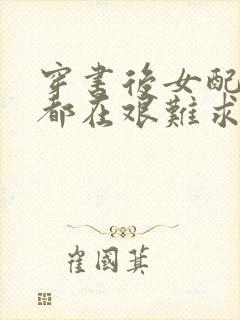 穿書後女配
都在艰難求
崔國萁